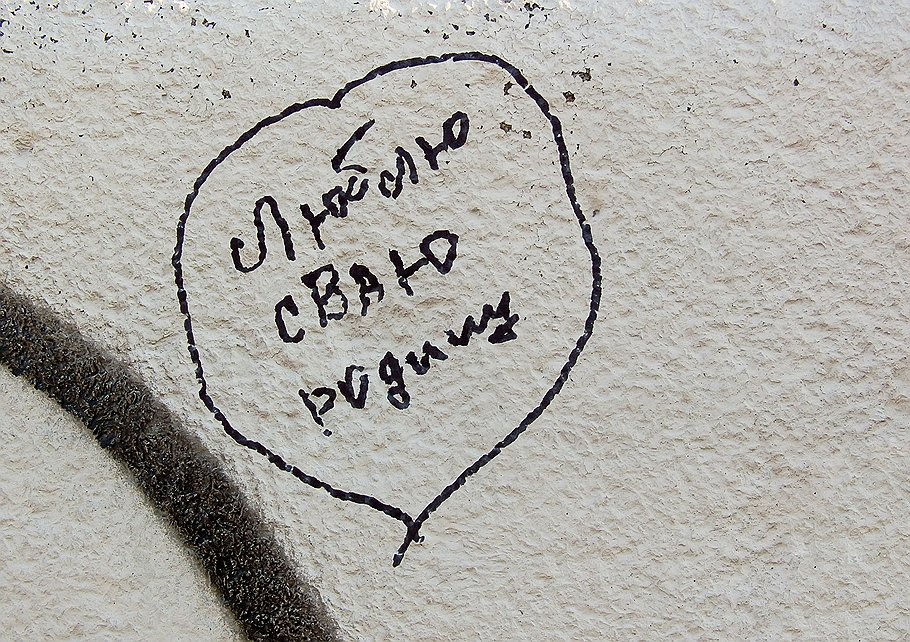 Люблю
сваю
родину